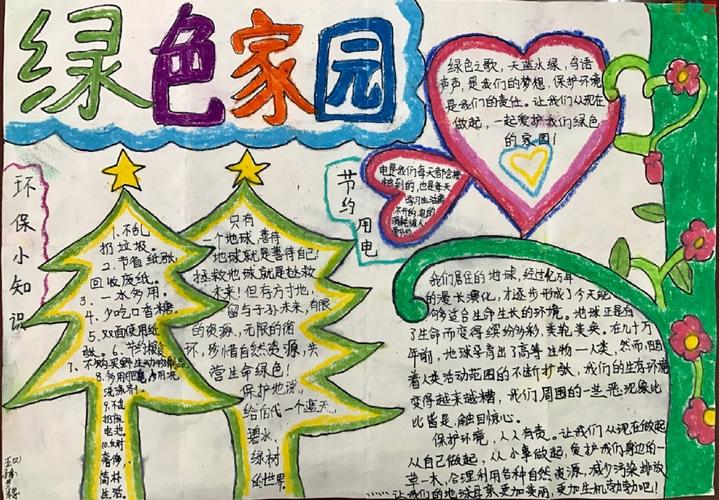 绿色家园
绿色之歌，天蓝水绿，鸟语
声声，是我们的梦想，保护环境
是我们的责任。让我们从现在
做起，一起爱护我们绿色
的家园！
环保小知识
1.不乱
扔垃圾。
2.节省纸张
回收废纸。
3.一水多用。
4.少吃口香糖。
5.双面使用纸
张。6.节约粮食
7.不购买野生动物制品。
8.多用肥皂少用洗
洗涤剂。
9.不乱
扔废
电池
10.反对
奢侈，
简朴
生活。
只有
一个地球，善待
地球就是善待自己！
拯救地球就是拯救
未来！但有方寸地，
留与子孙未来，有限
的资源，无限的循
环，珍惜自然资源，共
营生命绿色！
保护地球，
给后代一个蓝天
碧水，
绿树
的世界
节约用电
电是我们每天都会接
触到的，也是每天
学习生活离
不开的，电的
我们居住的地球，经过亿万年
的漫长演化，才逐步形成了今天能
够适合生命生长的环境。地球正是有
了生命而变得缤纷多彩，美轮美奂。在九十万
年前，地球孕育出了高等生物—人类，然而，随
着人类活动范围的不断扩散，我们的生存环境
变得越来越糟，我们周围的一些恶现象比
比皆是，触目惊心。
保护环境，人人有责。让我们从现在做起
从自己做起，从小事做起，爱护我们身边的一
草一木，合理利用各种自然资源，减少污染排放
让我们的地球母亲更加美丽，更加生机勃勃吧！